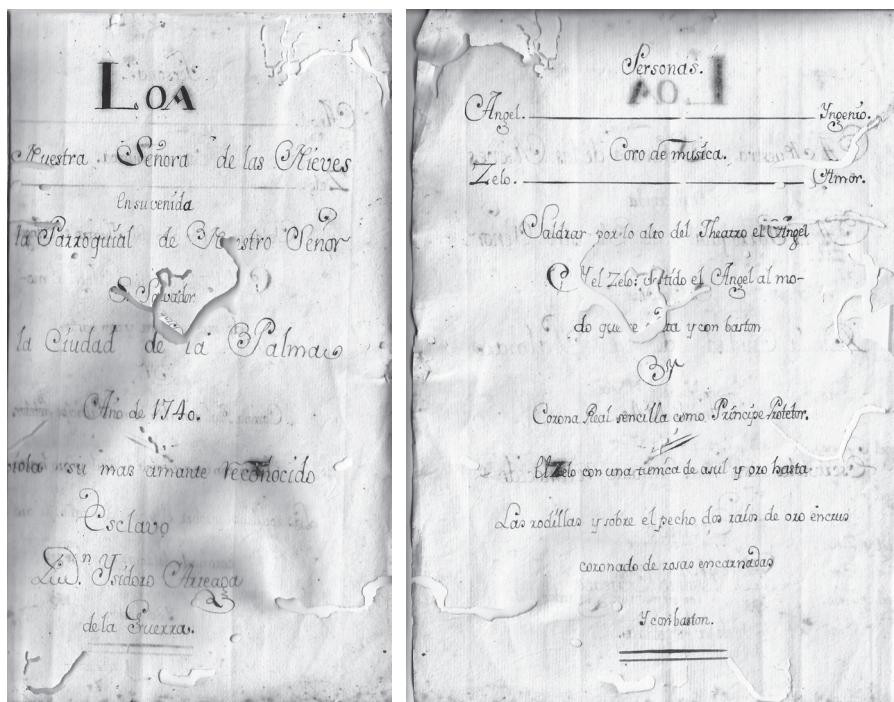 LOA
Nuestra Señora de las Nieves
En su venida
la Parroquial de Nuestro Señor
S. Salvador
la Ciudad de la Palma
Año de 1740.
su mas amante reconocido
Esclavo
Lizd.n Ysidoro Arteaga
de la Guerra.
Personas.
Angel. Yngenio.
Coro de musica.
Zelo. Amor.
Saldrar por lo alto del Theatro el Angel
Y el Zelo: vestido el Angel al mo-
do que se ta y con baston
Y
Corona Real sencilla como Príncipe Protetor.
El Zelo con una tunica de asul y oro hasta
Las rodillas y sobre el pecho dos raios de oro encrus
coronado de rosas encarnadas
Y con baston.